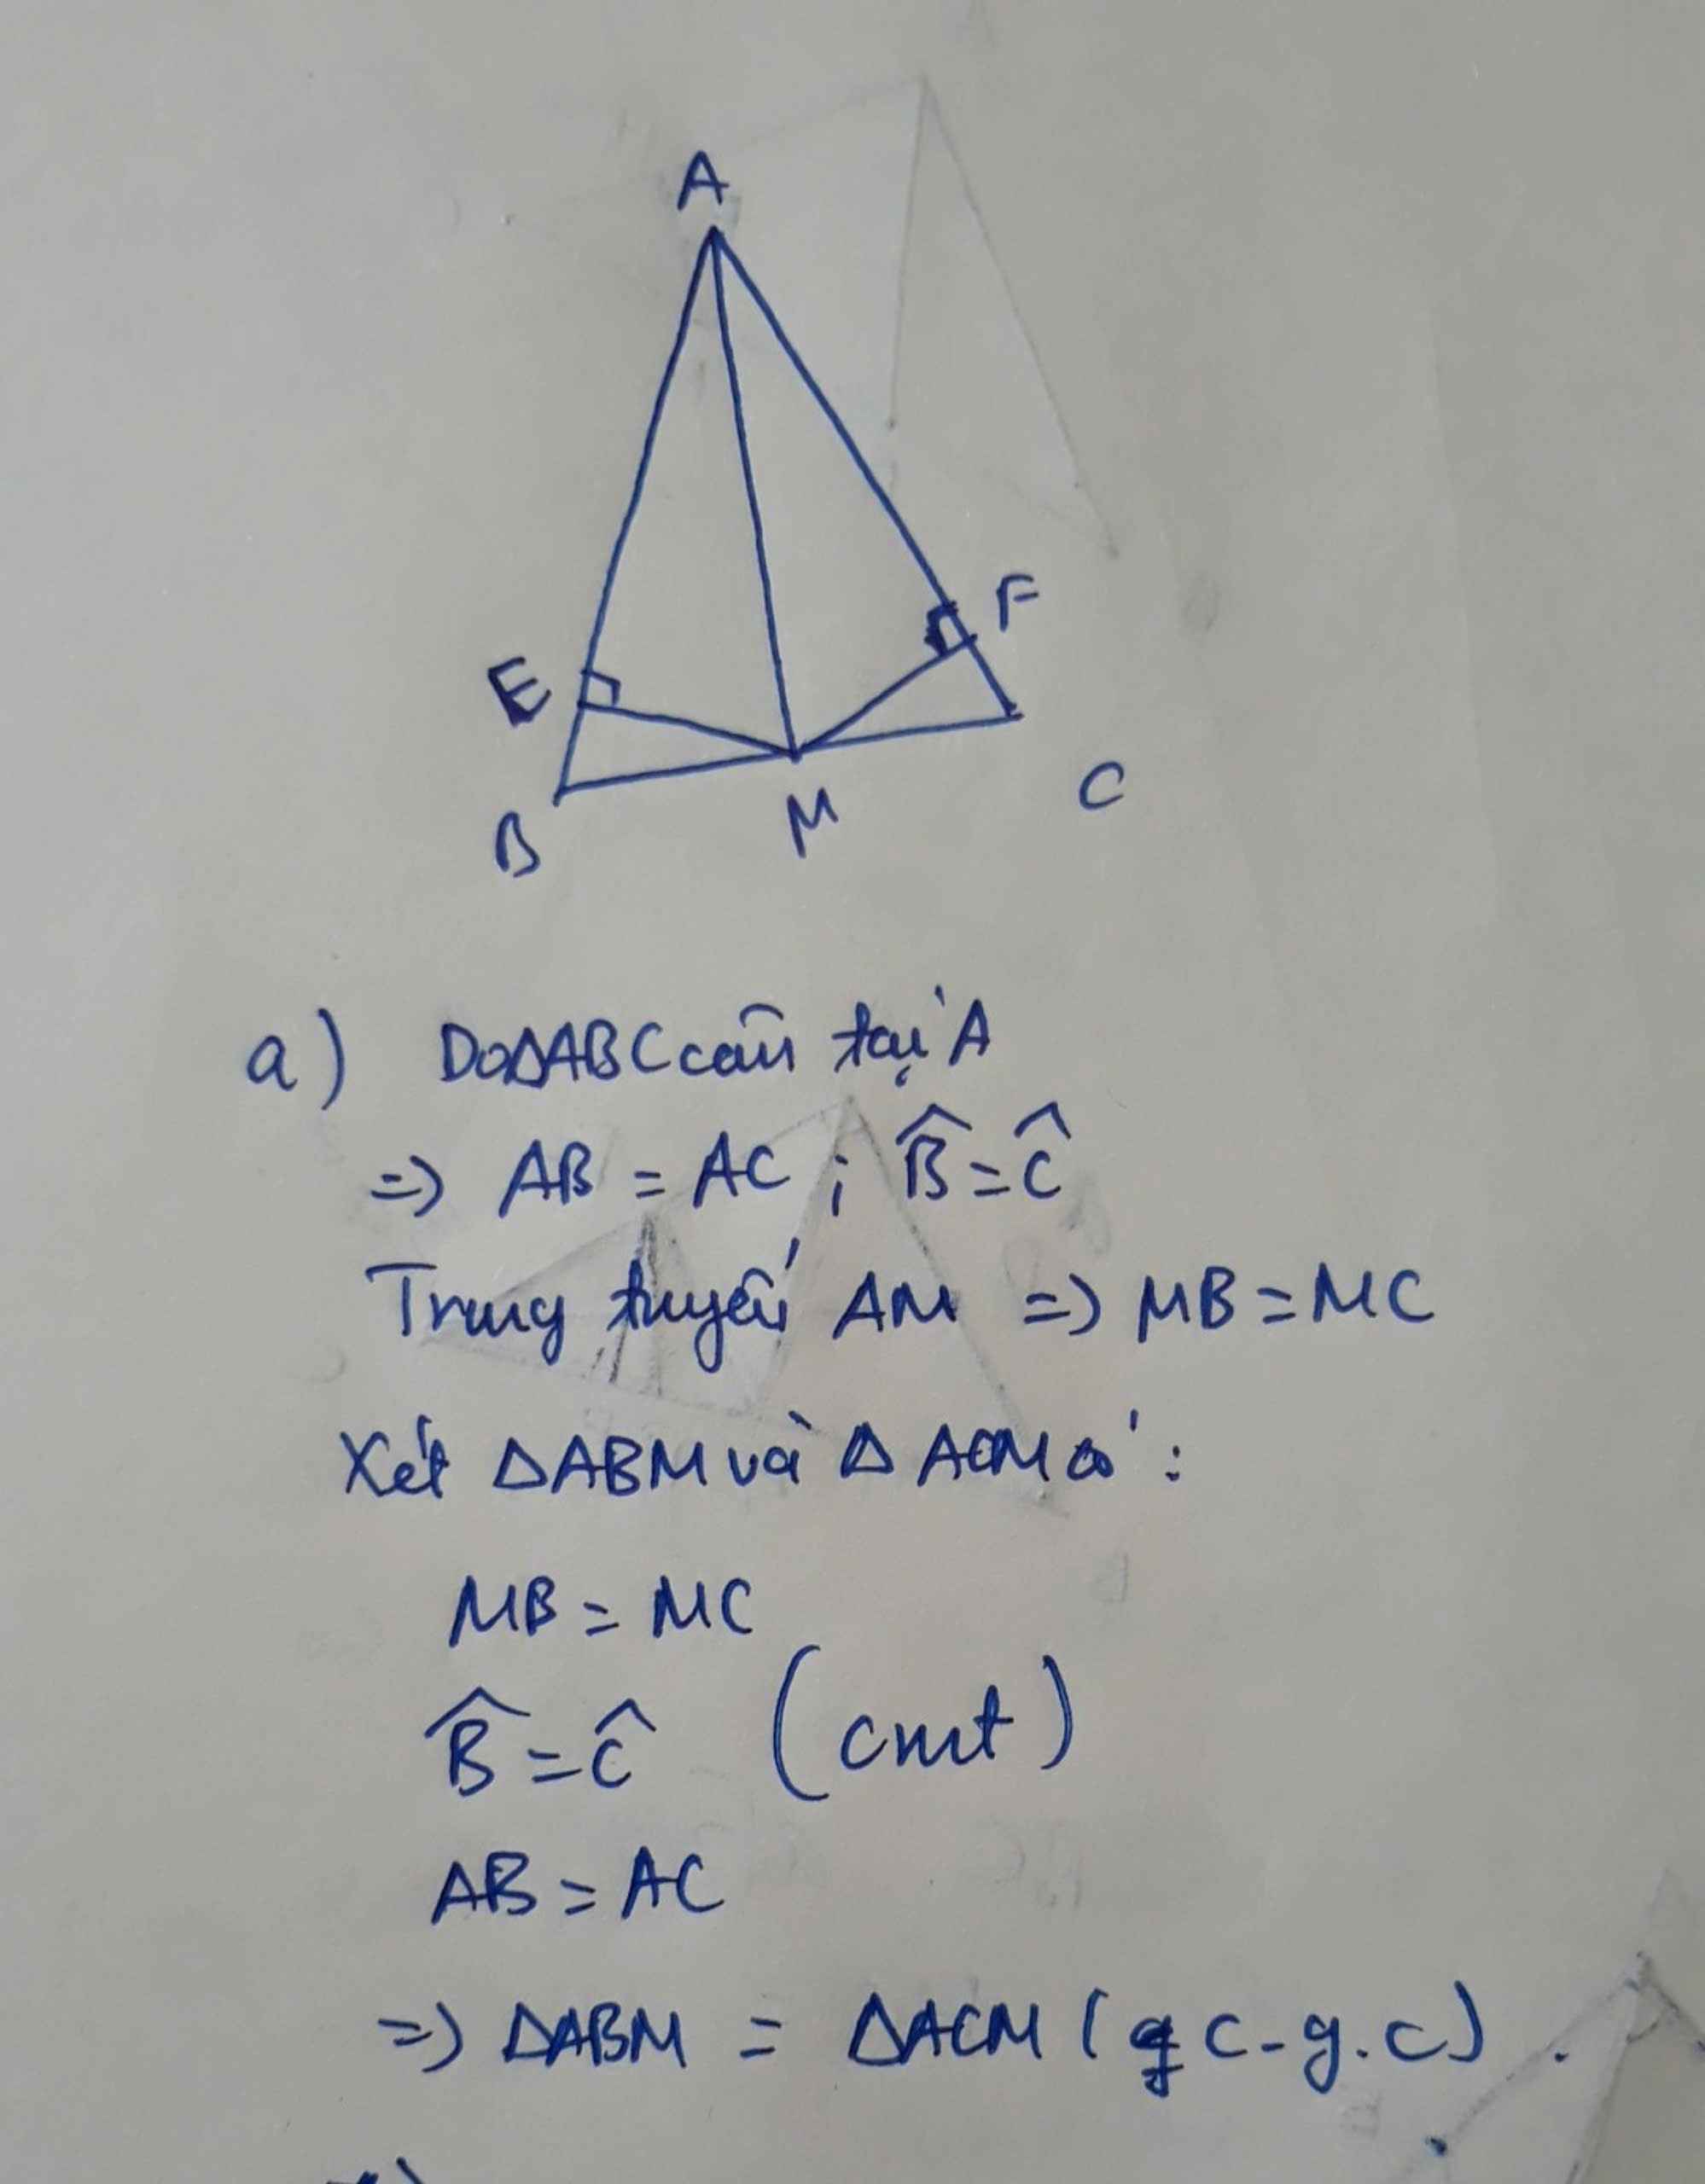 A
E
F
B
M
C
a) Do ΔABC cân tại A
=> AB = AC ; B̂ = Ĉ
Trung tuyến AM => MB = MC
Xét ΔABM và Δ ACM có :
MB = MC
B̂ = Ĉ (cmt)
AB = AC
=> ΔABM = ΔACM ( c-g.c) .